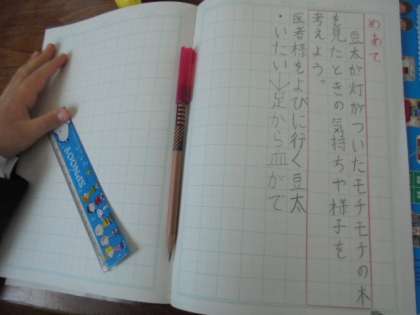 めあて
豆太が灯がついたモチモチの木
を見たときの気持ちや様子を
考えよう。
医者様をよびに行く豆太
・いたい→足から血がで
SNOOPY